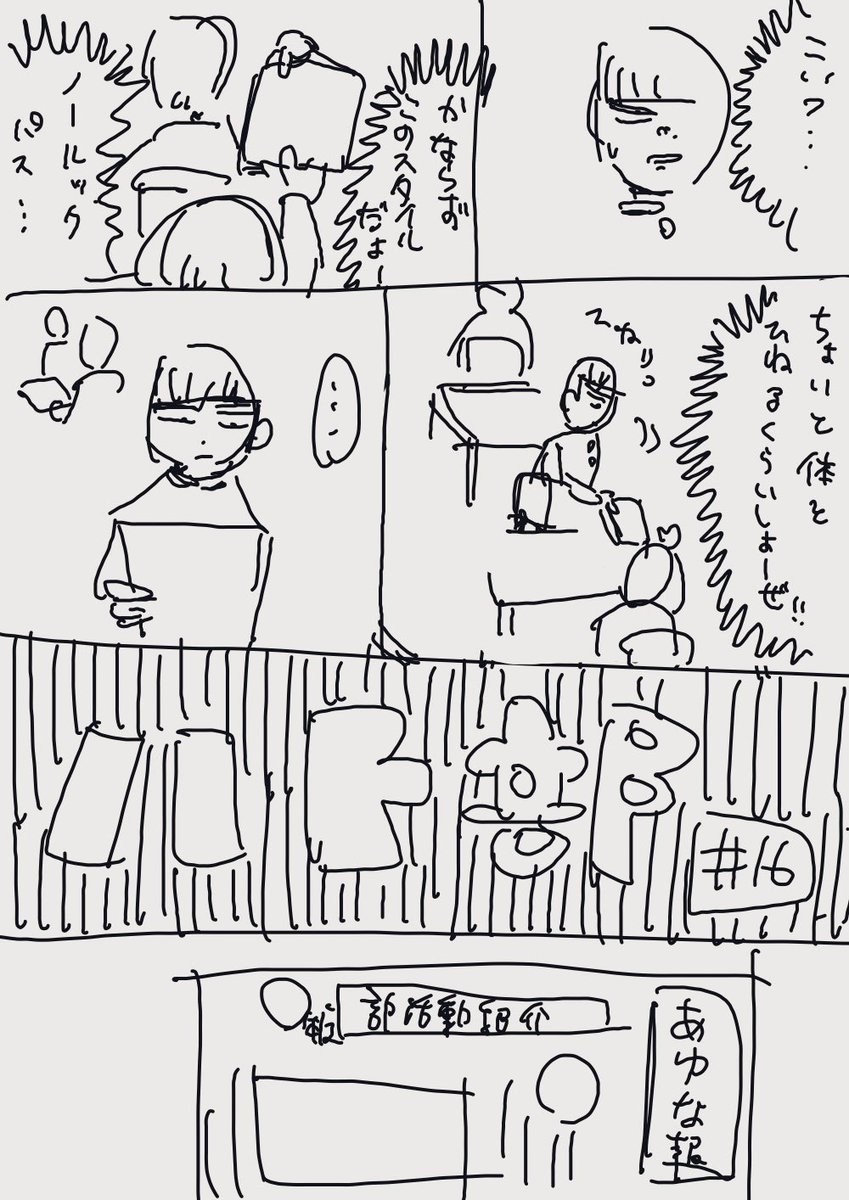 こいつ…
かならず
このスタイル
だよー
ノールック
パス…
ちょいと体を
ひねるくらいしよーぜ!!
ひねりっ
…
#16
あゆな報
部活動紹介